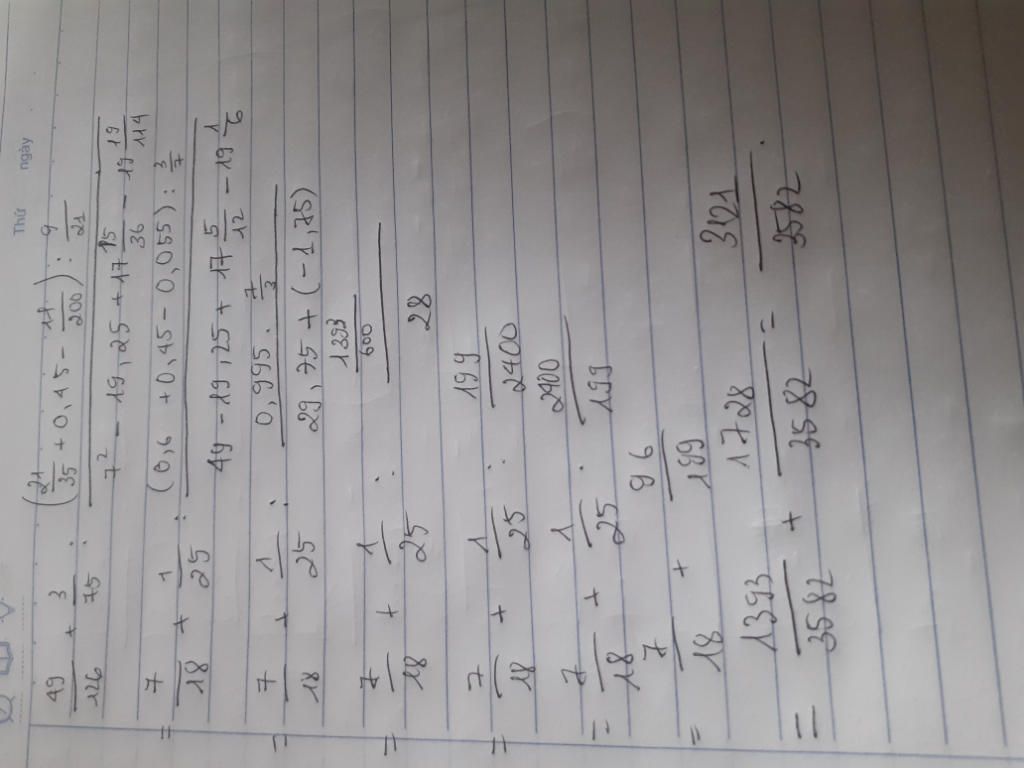 Thứ ngày
49/126 + 3/75 : (21/35 + 0,45 - 11/200) : 9/21 / 7² - 19,25 + 17 15/36 - 19 19/114
= 7/18 + 1/25 : (0,6 + 0,45 - 0,055) : 3/7 / 49 - 19,25 + 17 5/12 - 19 1/6
= 7/18 + 1/25 : 0,995 . 7/3 / 29,75 + (-1,75)
= 7/18 + 1/25 : 1393/600 / 28
= 7/18 + 1/25 : 199/2400
= 7/18 + 1/25 . 2400/199
= 7/18 + 96/199
= 1393/3582 + 1728/3582 = 3121/3582 .